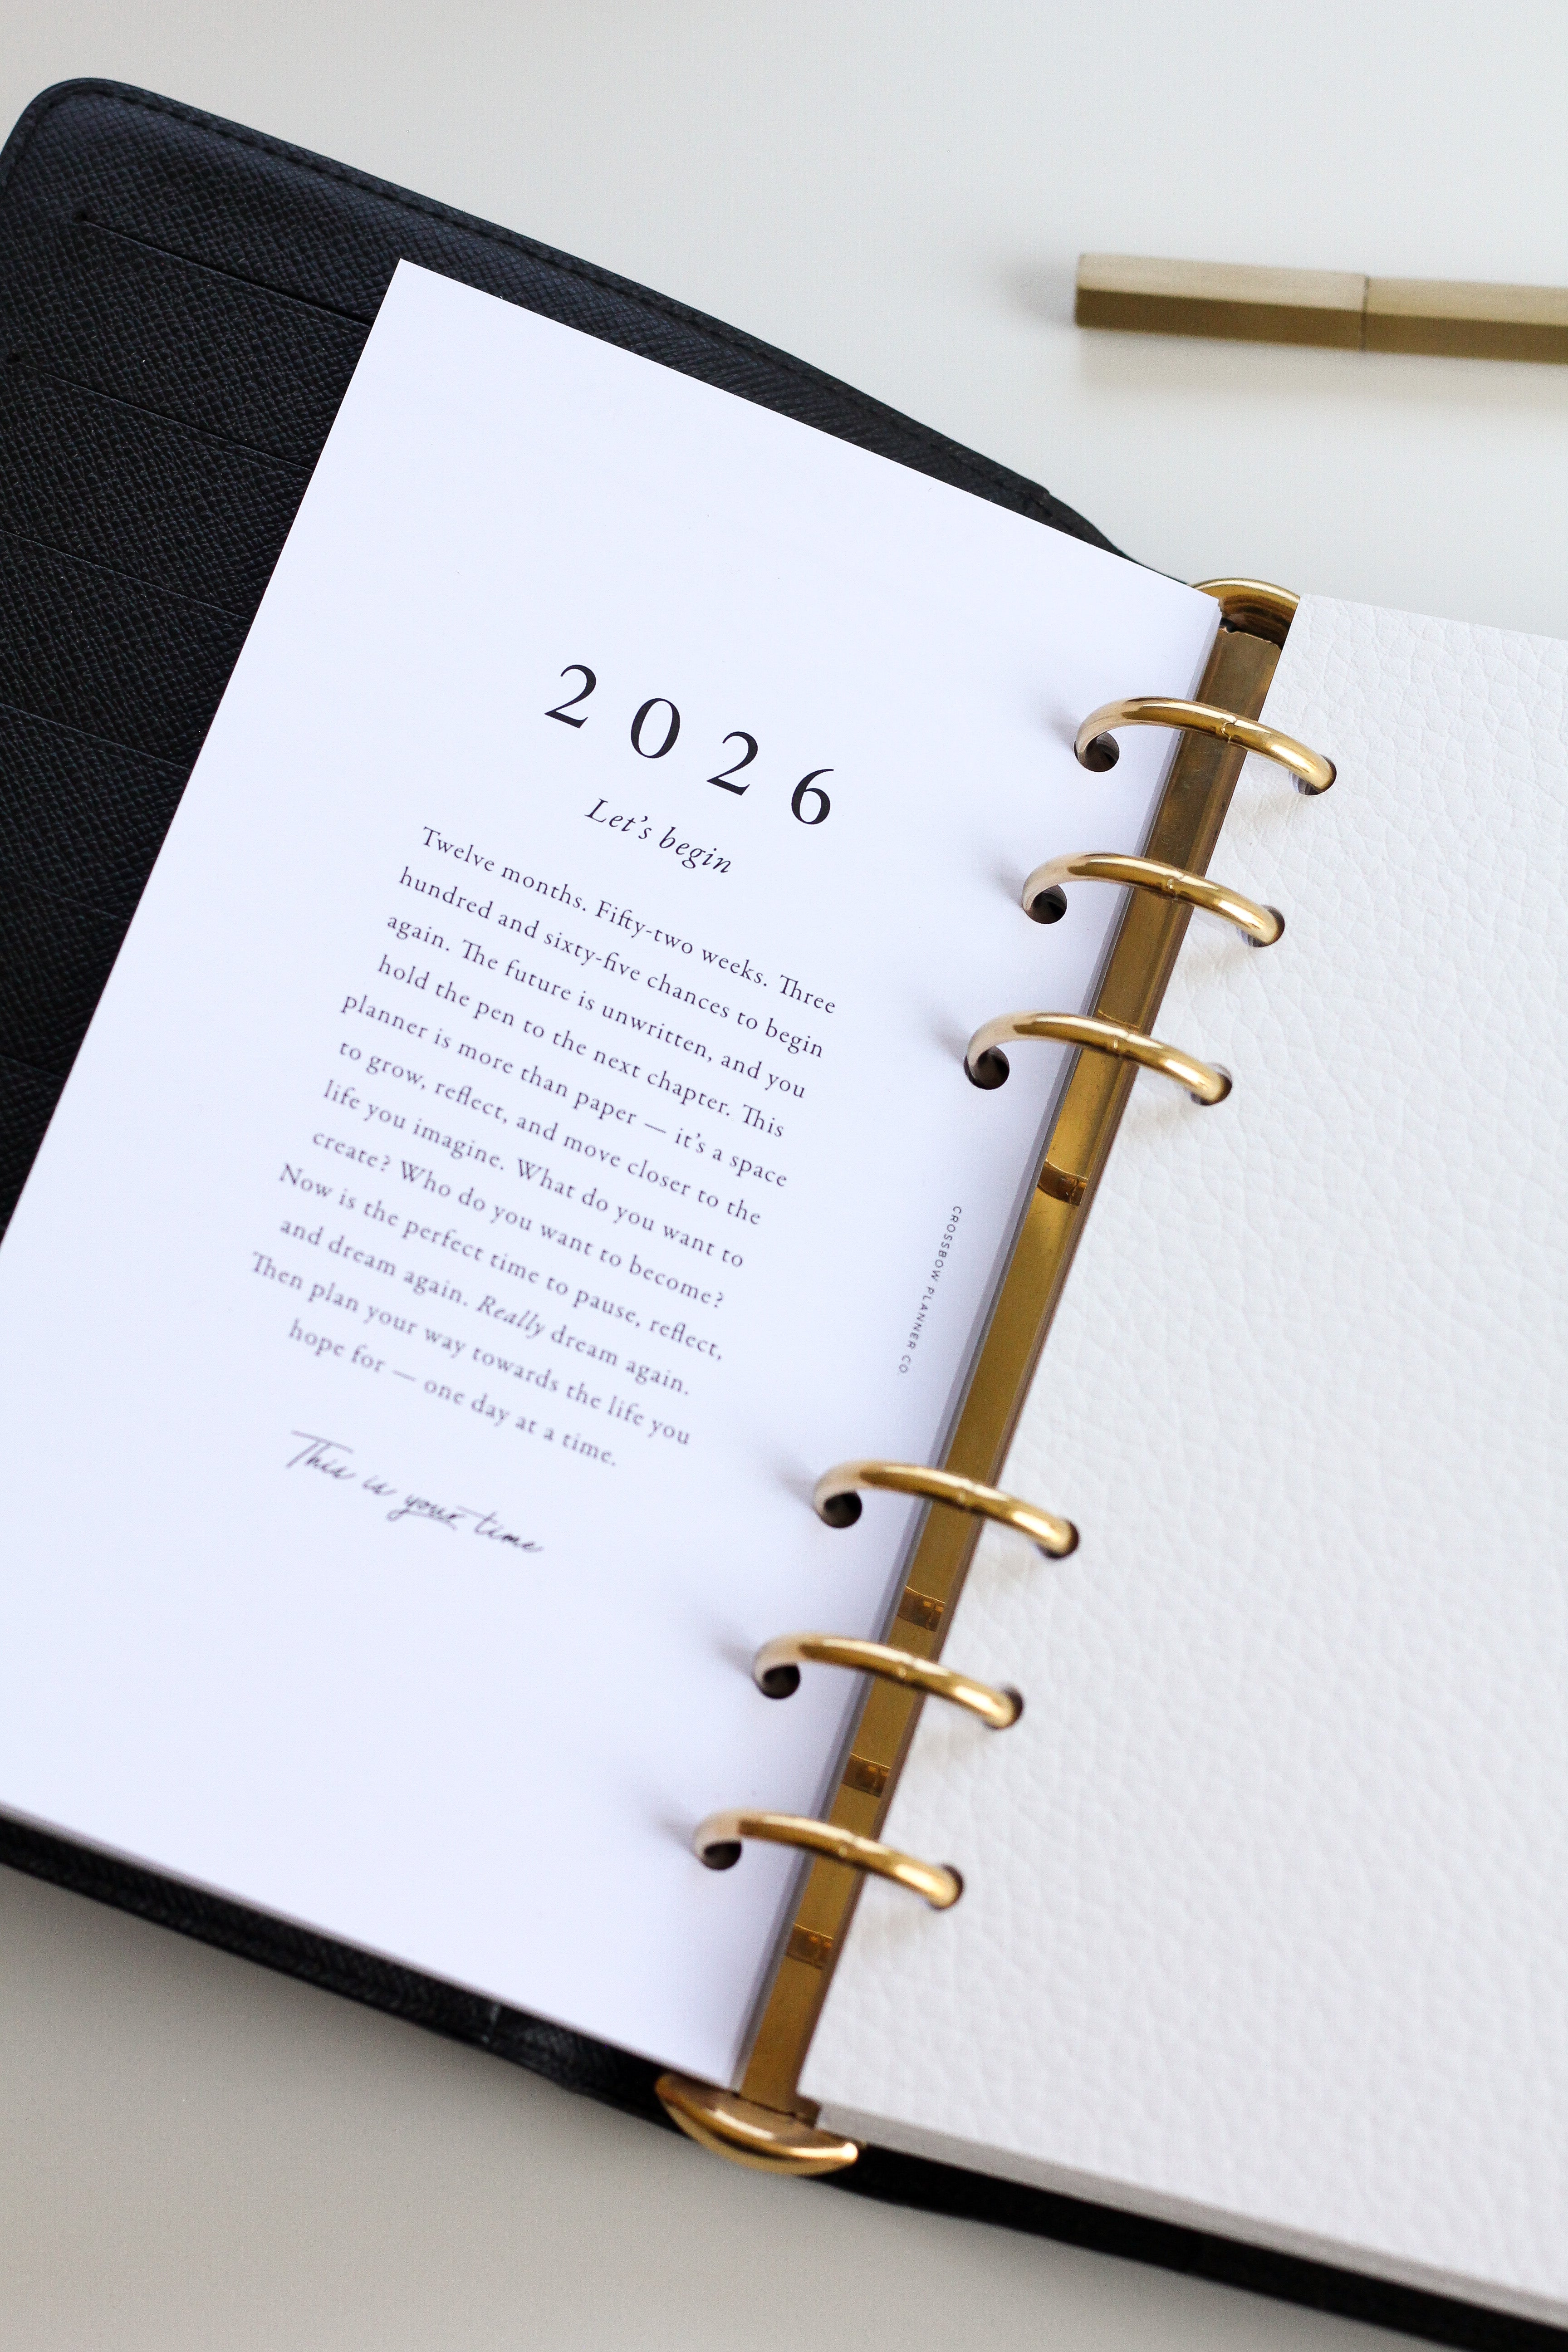 2026
Let's begin
Twelve months. Fifty-two weeks. Three
hundred and sixty-five chances to begin
again. The future is unwritten, and you
hold the pen to the next chapter. This
planner is more than paper — it's a space
to grow, reflect, and move closer to the
life you imagine. What do you want to
create? Who do you want to become?
Now is the perfect time to pause, reflect,
and dream again. Really dream again.
Then plan your way towards the life you
hope for — one day at a time.
This is your time
CROSSBOW PLANNER CO.